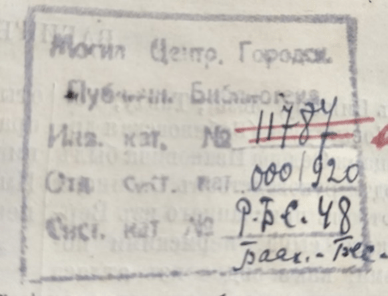 Могил Центр. Городск.
Публичн. Библиотека
Инв. кат. № 11787
Отд. сист. кат. 000/920
Сист. кат № Р.Б.Е.48